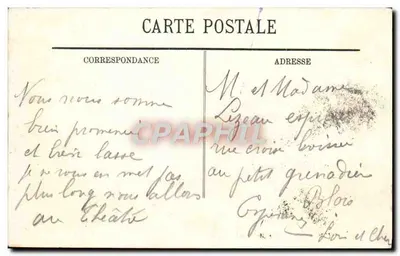 CARTE POSTALE
CORRESPONDANCE
ADRESSE
Nous nous somme
bien promener
et bien lasse
je ne vous en met pas
plus long nous allons
au théâtre
M. et Madame
Lezeau
rue croix boissée
au petit grenadier
Blois
Loir et Cher
CPAPHIL